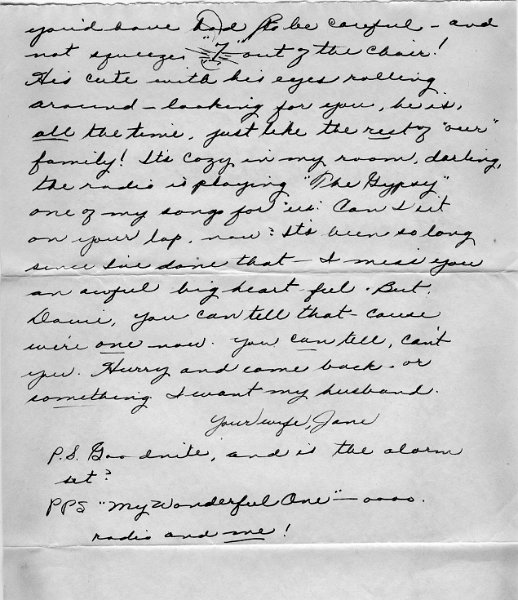 you'd have had to be careful - and
not squeeze "7" out of the chair!
His cute with his eyes rolling
around - looking for you, he is,
all the time, just like the rest of "our"
family! It's cozy in my room, darling,
the radio is playing "The Gypsy"
one of my songs for "us". Can I sit
on your lap, now? It's been so long
since I've done that - I miss you
an awful big heart-ful. But,
you can tell that - cause
we're one now. You can tell, can't
you. Hurry and come back - or
something I want my husband.
Your wife, Jane
P.S. Goodnite, and is the alarm
set?
PPS "My Wonderful One" - oooo.
radio and me!